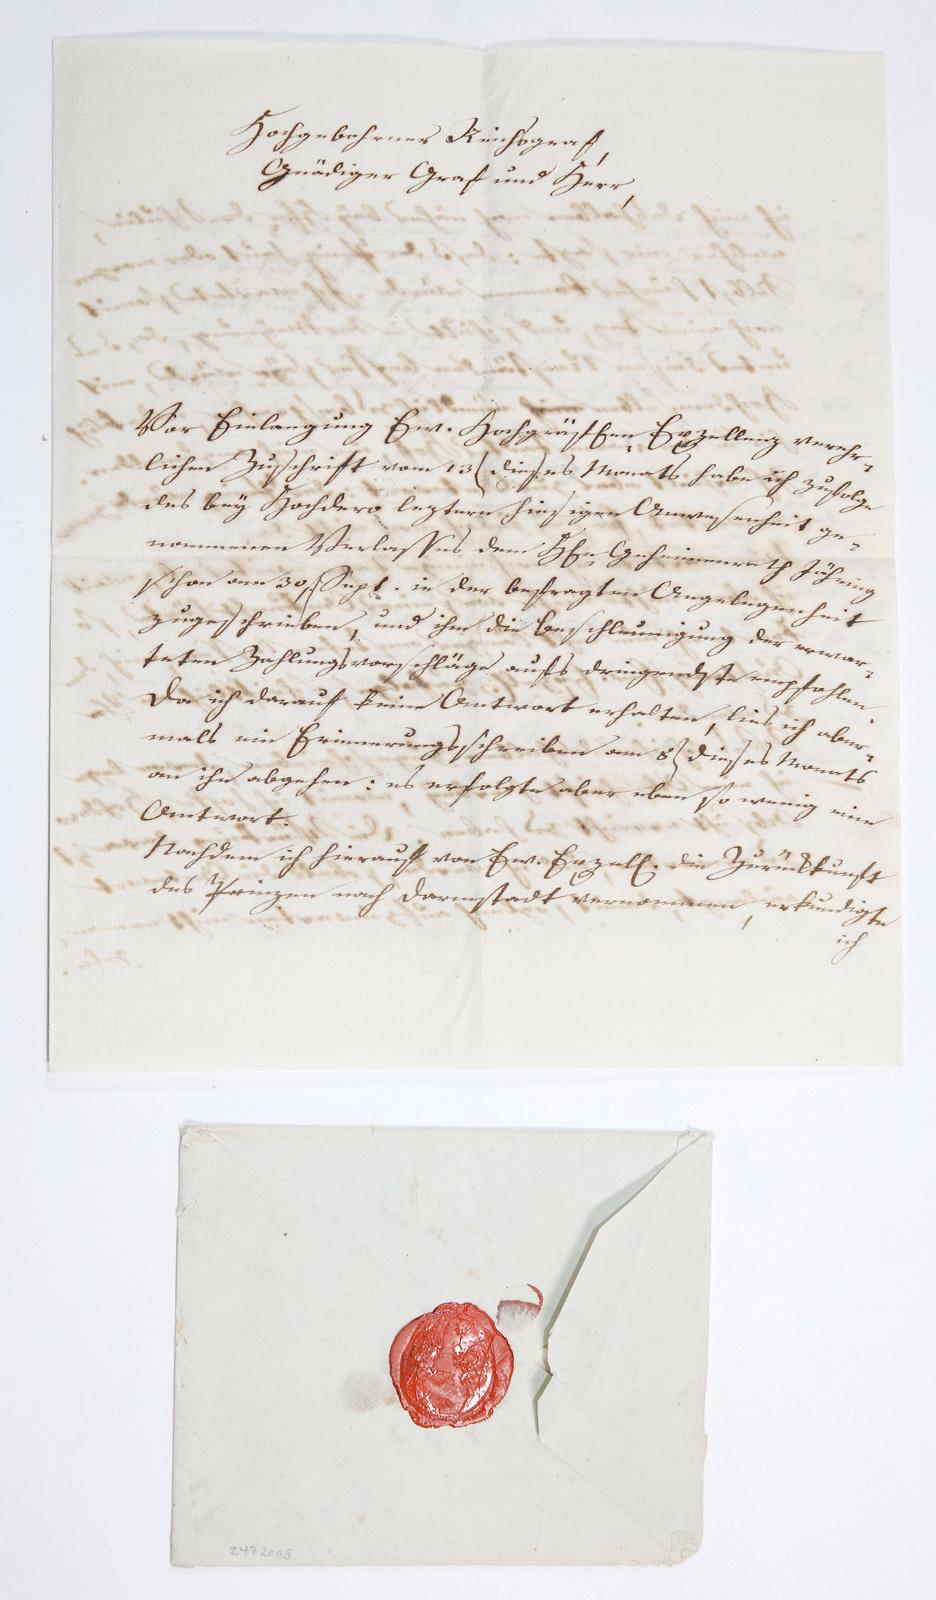 Hochgebohrner Reichsgraf,
Gnädiger Graf und Herr,
Vor Einlangung Ew. Hochgräflichen Exzellenz verehr-
lichen Zuschrift vom 13 dieses Monats habe ich zufolge
des bey Hochdero leztern hiesigen Anwesenheit ge-
nommenen Verlasses dem Hfn Geheimenrath
schon am 30 Sept. in der befragten Angelegenheit
zugeschrieben, und ihm die Beschleunigung der erwar-
teten Zahlungsvorschläge aufs dringendste empfohlen.
Da ich darauf keine Antwort erhalten, lies ich aber-
mals ein Erinnerungsschreiben am 8 dieses Monats
an ihn abgehen: es erfolgte aber eben so wenig eine
Antwort.
Nachdem ich hierauf von Ew. Exzell. die Zurückkunft
des Prinzen nach Darmstadt vernommen, erkundigte
ich
2472009